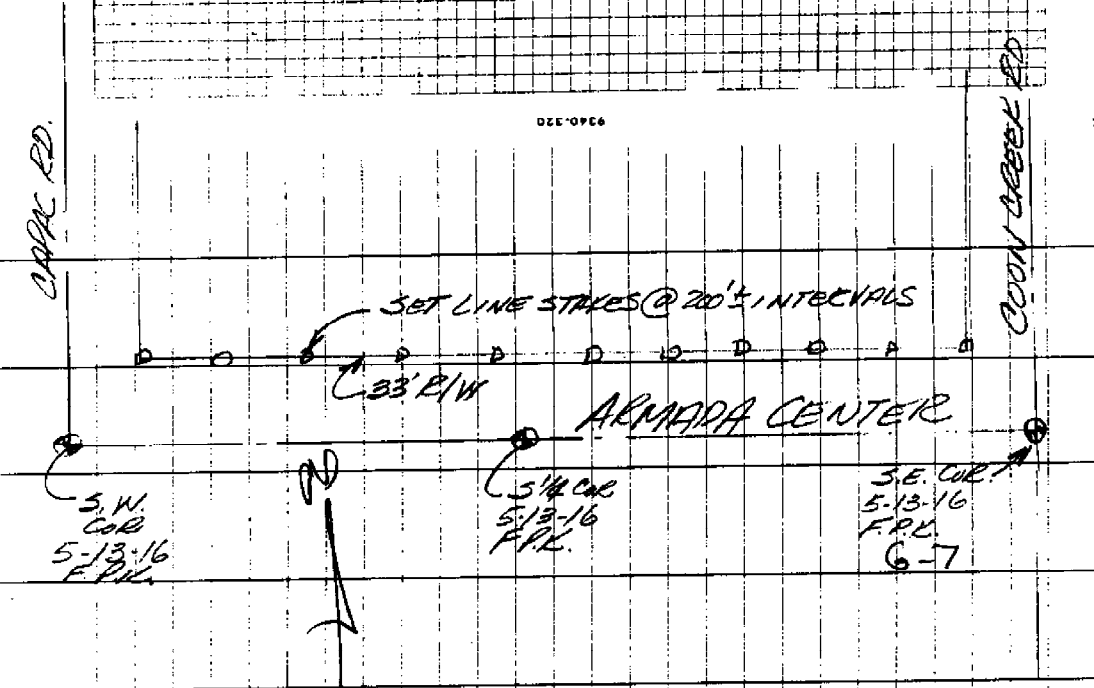 9340.320
CAPAC RD.
COON CREEK RD
SET LINE STAKES @ 200'± INTERVALS
33' R/W
ARMADA CENTER
N
S.W.
COR
5-13-16
F.P.K.
S 1/4 COR
5-13-16
F.P.K.
S.E. COR.
5-13-16
F.P.K.
6-7